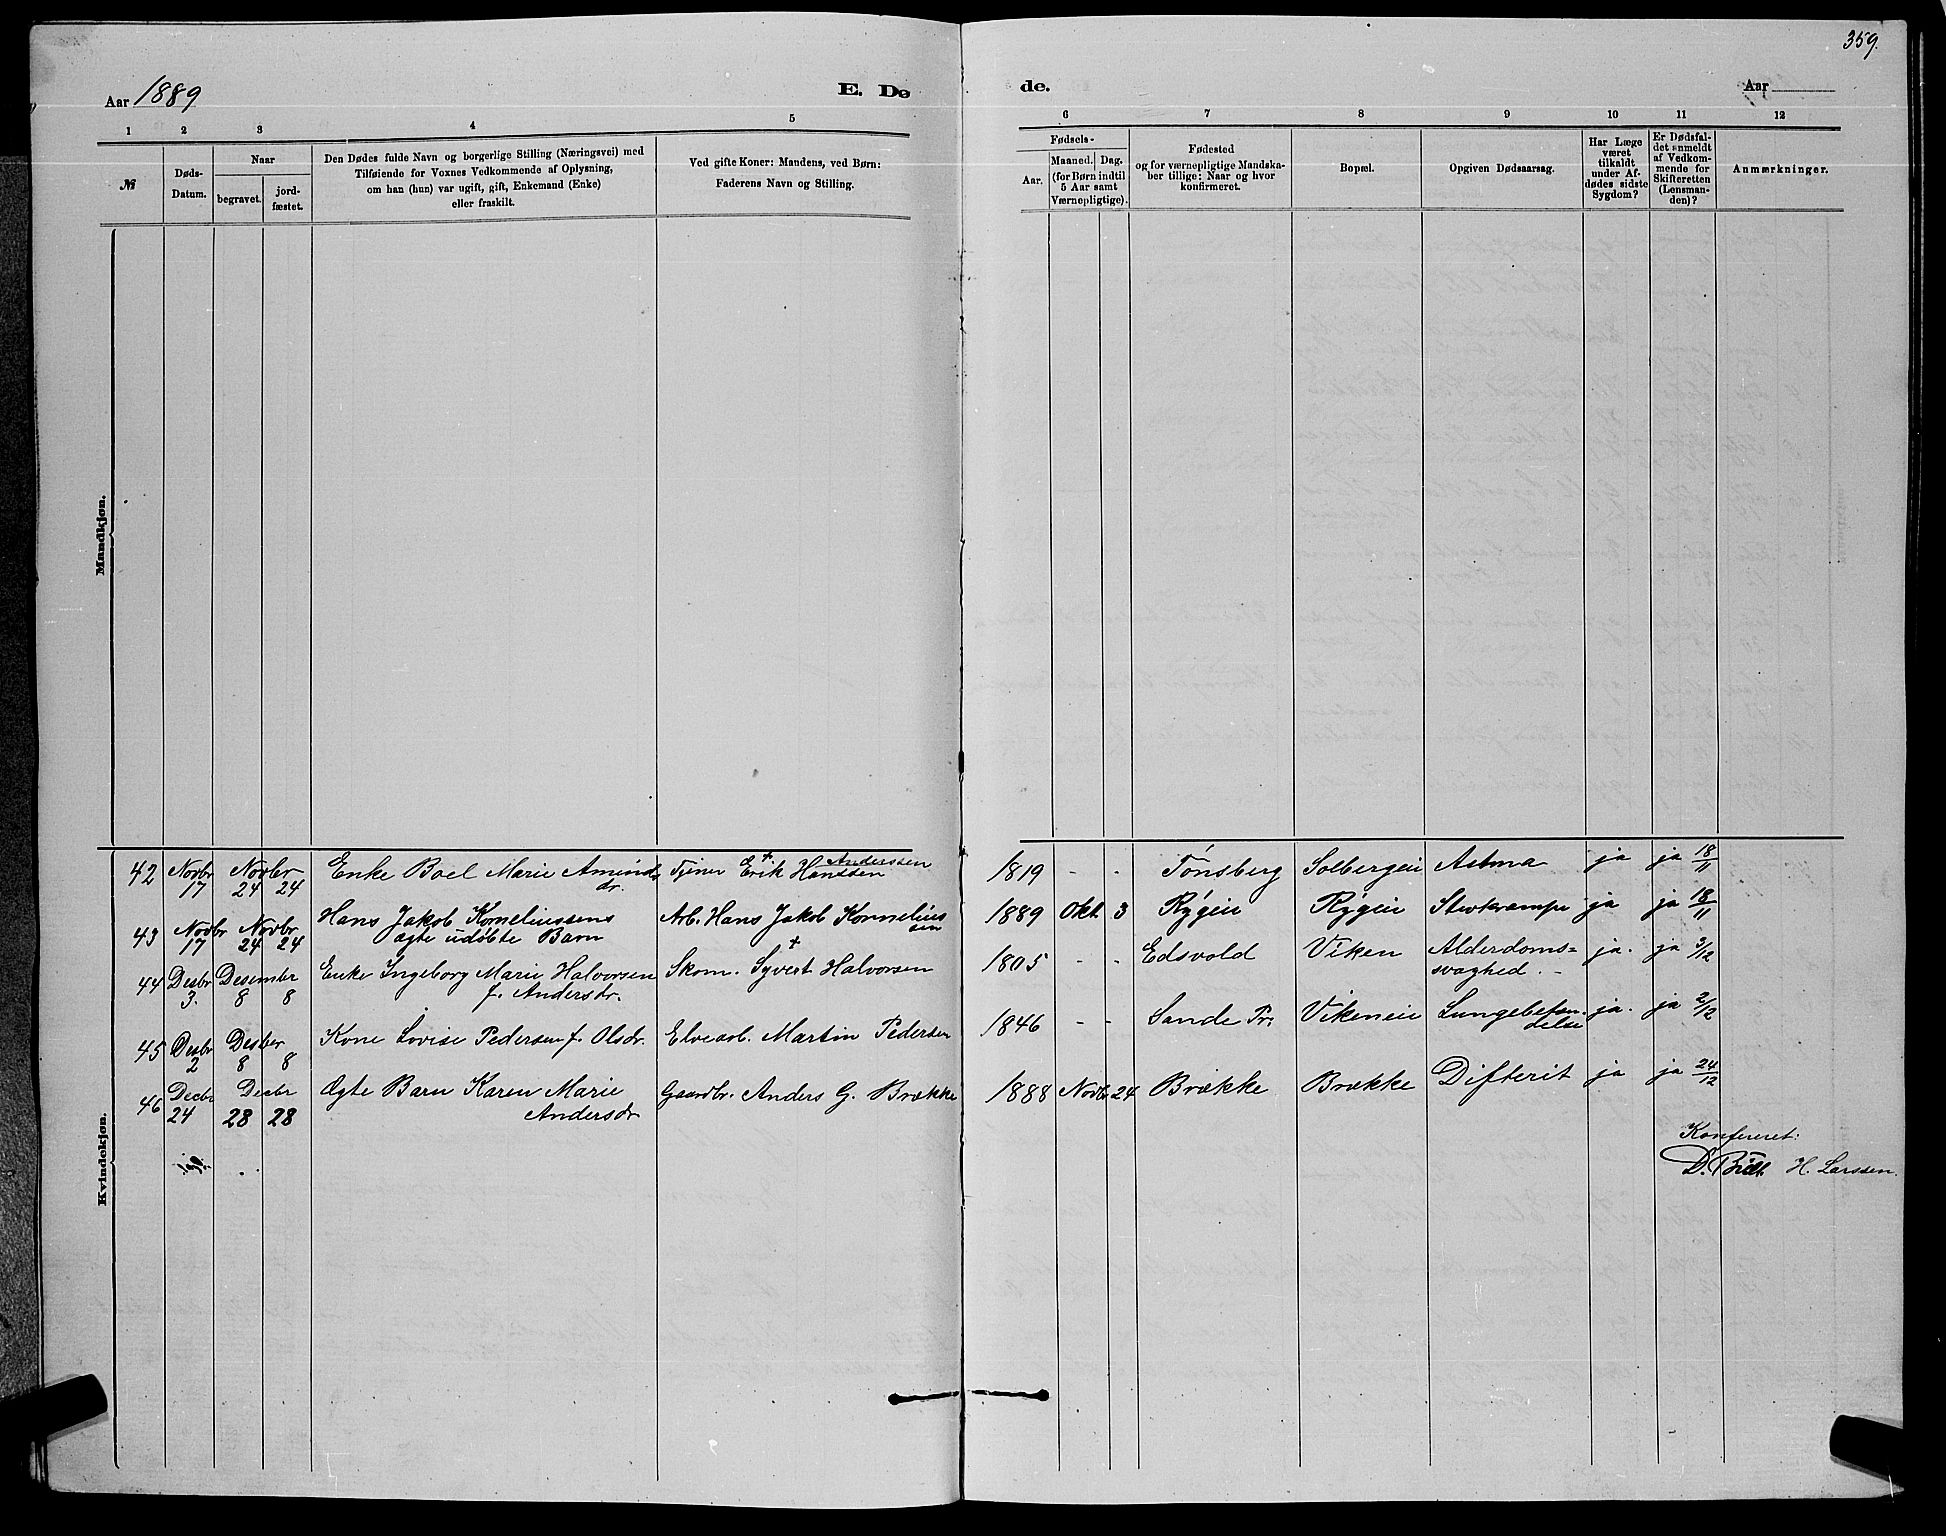 359.
Aar 1889
E. Dø
de.
Aar
1 2 3 4 5
6 7 8 9 10 11 12
№
Døds-
Datum.
Naar
begravet.
jord-
fæstet.
Den Dødes fulde Navn og borgerlige Stilling (Næringsvei) med
Tilføiende for Voxnes Vedkommende af Oplysning,
om han (hun) var ugift, gift, Enkemand (Enke)
eller fraskilt.
Ved gifte Koner: Mandens, ved Børn:
Faderens Navn og Stilling.
Fødsels-
Aar.
Maaned. Dag.
(for Børn indtil
5 Aar samt
Værnepligtige).
Fødested
og for værnepligtige Mandska-
ber tillige: Naar og hvor
konfirmeret.
Bopæl.
Opgiven Dødsaarsag.
Har Læge
været
tilkaldt
under Af-
dødes sidste
Sygdom?
Er Dødsfal-
det anmeldt
af Vedkom-
mende for
Skifteretten
(Lensman-
den)?
Anmærkninger.
Mandkjøn.
Kvindekjøn.
42 Novbr Novbr Enke Boel Marie Amund- Tjener Erik Hanssen Anderssen 1819 - - Tønsberg Solbergeie Astma ja ja 18/11
17 24 24 dr.
43 Novbr Novbr Hans Jakob Korneliussens Arb. Hans Jakob Kornelius 1889 Okt 3 Rygeie Rygeie Stivkrampe ja ja 18/11
17 24 24 ægte udøbte Barn sen
44 Desbr Desember Enke Ingeborg Marie Halvorsen Skom. Syvert Halvorsen 1805 - - Edsvold Viken Alderdoms= ja. ja 3/12
3. 8 8 f. Andersdr. svaghed. -
45 Desbr Desber Kone Lovise Pedersen f. Olsdr. Elvearb. Martin Pedersen 1846 - - Sande Pr: Vikeneie Lungebetæn- ja. ja 2/12
2 8 8 delse
46 Decbr Decbr Ægte Barn Karen Marie Gaardbr. Anders G. Brække 1888 Novbr 24 Brække Brække Difterit ja ja 24/12
24 28 28 Andersdr
Konfereret:
H. Larssen.